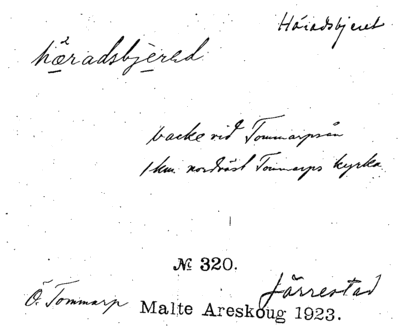 Häradsbjeret
häradsbjerəd
backe vid Tommarpsån
1 km. nordväst Tommarps kyrka
№ 320.
Ö. Tommarp
Järrestad
Malte Areskoug 1923.